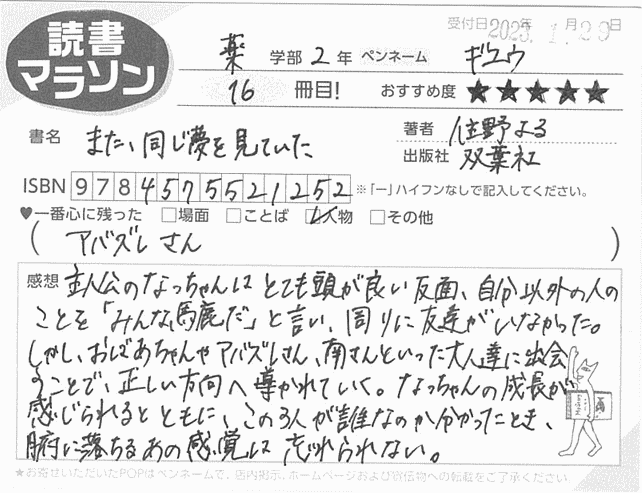 読書
マラソン
受付日 2023年 1月29日
薬 学部 2年 ペンネーム ギユウ
16 冊目! おすすめ度 ★★★★★
書名 また、同じ夢を見ていた
著者 住野よる
出版社 双葉社
ISBN 9784575521252 ※「ー」ハイフンなしで記入してください。
♥一番心に残った □場面 □ことば ☑人物 □その他
( アバズレさん )
感想 主人公のなっちゃんはとても頭が良い反面、自分以外の人の
ことを「みんな馬鹿だ」と言い、周りに友達がいなかった。
しかし、おばあちゃんやアバズレさん、南さんといった大人達に出会
うことで、正しい方向へ導かれていく。なっちゃんの成長が
感じられるとともに、この3人が誰なのか分かったとき、
腑に落ちるあの感覚は忘れられない。
★お寄せいただいたPOPはペンネームで、店内掲示、ホームページおよび宣伝物への転載をご了承ください。